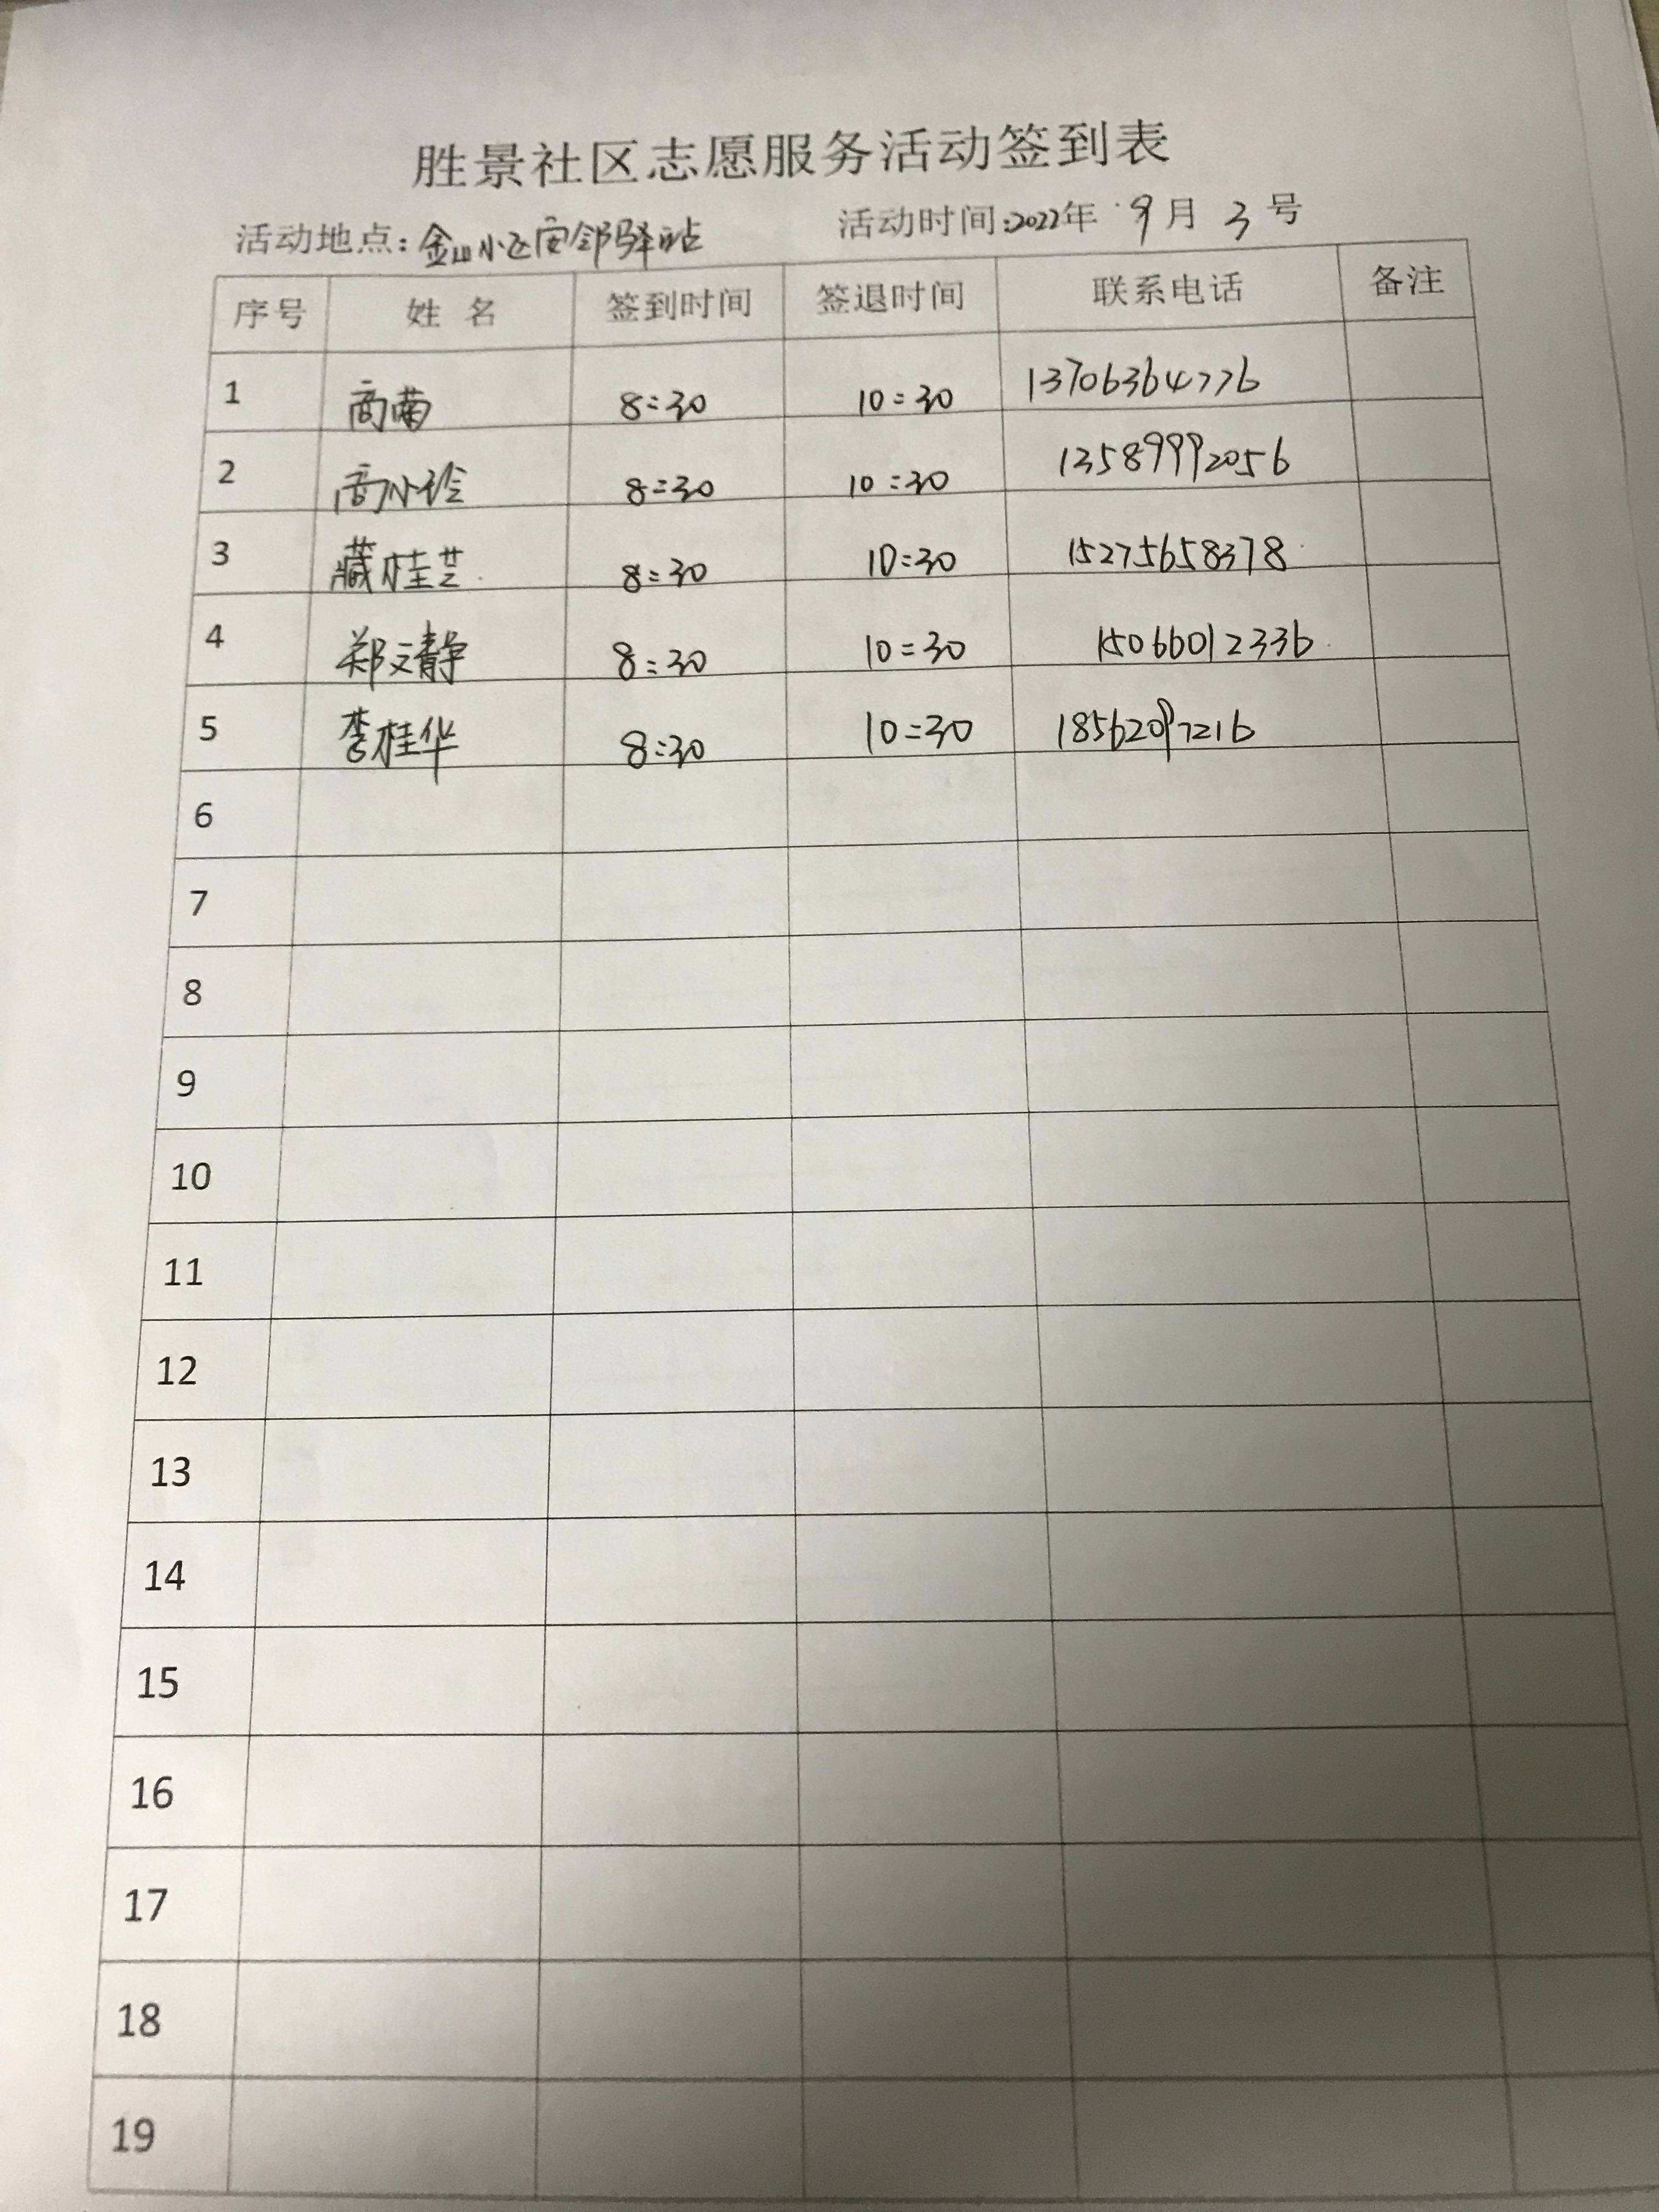 胜景社区志愿服务活动签到表
活动地点:金山小区安邻驿站 活动时间:2022年 9月 3号
序号 姓 名 签到时间 签退时间 联系电话 备注
1 商菊 8:30 10:30 13706364776
2 商小玲 8:30 10:30 13589992056
3 藏桂芝 8:30 10:30 15275658378
4 郑文静 8:30 10:30 15066012336
5 李桂华 8:30 10:30 18562097216
6
7
8
9
10
11
12
13
14
15
16
17
18
19